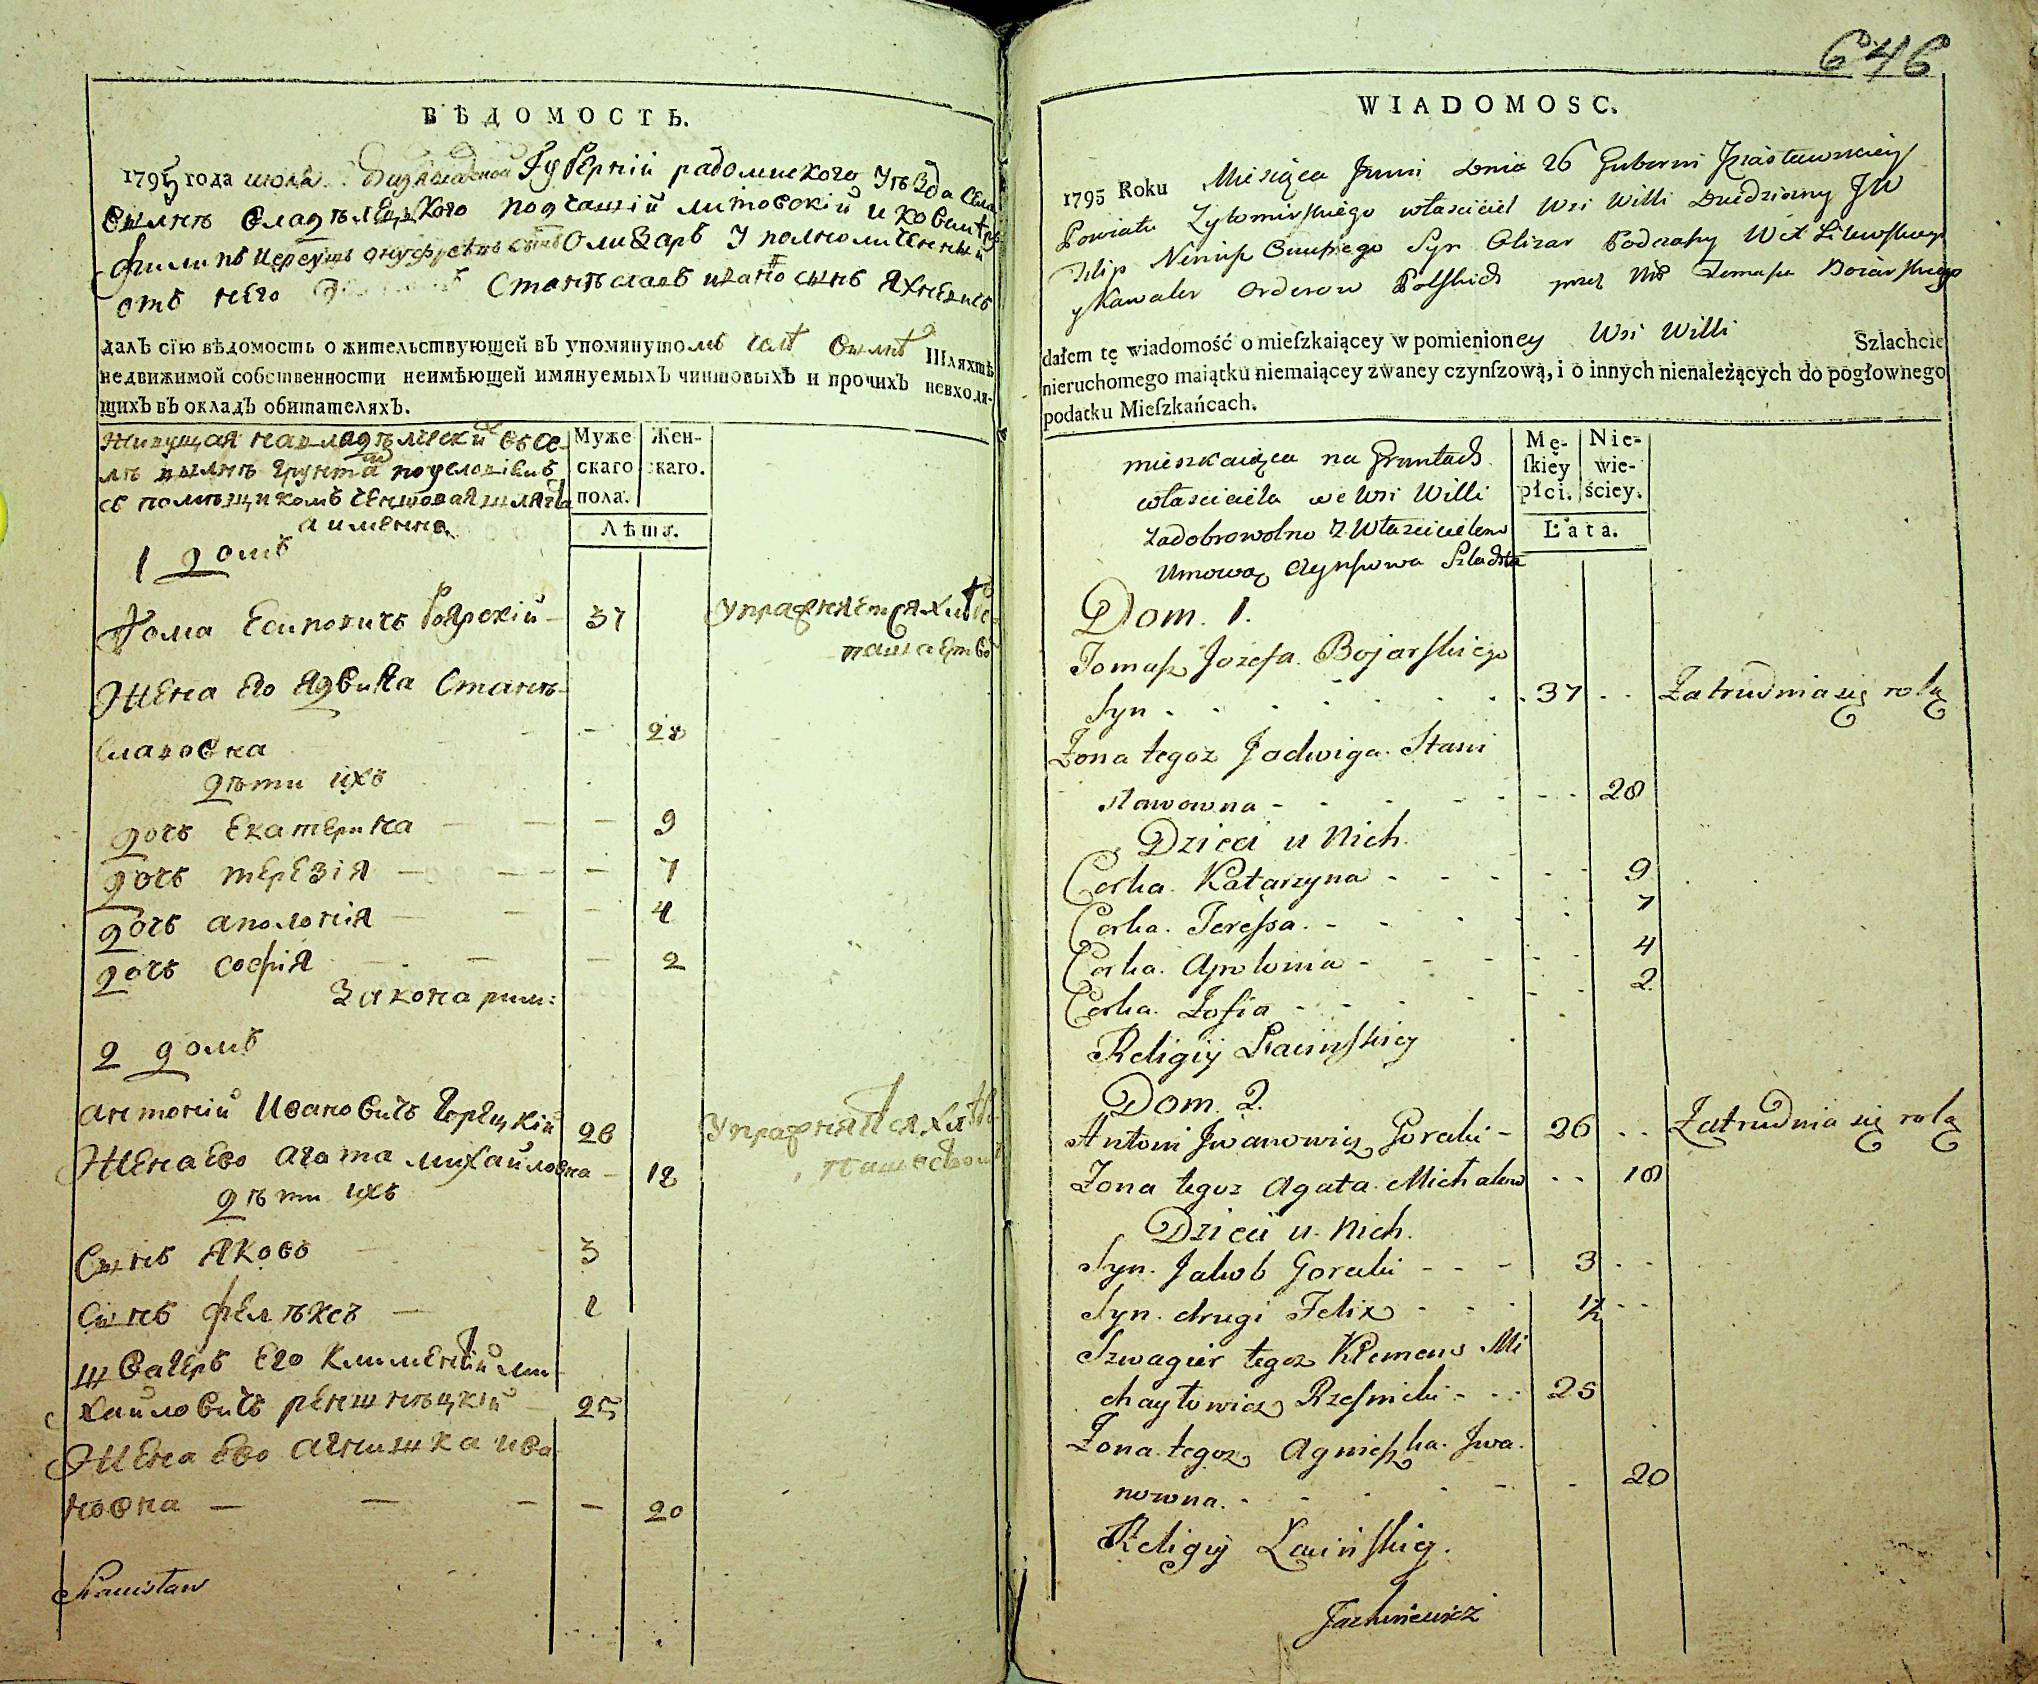 ВѢДОМОСТЬ.
1795 года июля Губерніи радомиского Уѣзда села
вылнѣ владѣлецкого подчашій литовскій и ковалеръ
филипъ Нереушъ онуфріевъ сынъ Олизаръ Уполномоченный
отъ него Станѣславъ ивановъ сынъ Яхневичъ
далЪ сїю вѣдомость о жительствующей вЪ упомянутомъ селѣ вылнѣ Шляхтѣ
недвижимой собственности неимѣющей имянуемыхЪ чиншовыхЪ и прочихЪ невходя-
щихЪ вЪ окладЪ обитателяхЪ.
Живущая на владѣлческой въ се-
лѣ вылнѣ грунта по условіямъ
съ помѣщикомъ чиншовая шляхта
а имянно
Муже
скаго
пола.
Жен-
скаго.
Лѣта.
1 домъ
Фома Есиповичъ Боярскій — 37 Упражняется хлебо-
пашествомъ
Жена его Ядвига Станѣ-
славовна — 28
дѣти ихъ
дочь Екатерина — — — 9
дочь терезія — — — 7
дочь аполонія — — — 4
дочь софія — — — 2
Закона рим:
2 домъ
антоній Ивановичъ Горецкій 26 Упражняется хлебо-
пашествомъ
Жена Ево агата михайловна — 18
дѣти ихъ
Сынъ Яковъ 3
Сынъ фелѣксъ — 1
шВагеръ Его климентій ми-
хайловичъ решнѣцкій — 25
Жена Ево агнишка ива-
новна — — — — 20
Stanisław
646
WIADOMOSC.
1795 Roku Miesiąca Juni dnia 26 Guberni Iziasławskiey
Powiatu Zytomirskiego właściciel Wsi Willi Dziedziczny JW
Filip Nereusz Onufrego Syn Olizar Podczaszy WXLitewskiego
y Kawaler Orderow Polskich przez Tomasza Boiarskiego
dałem tę wiadomość o mieſzkaiącey w pomienioney Wsi Willi Szlachcie
nieruchomego maiątku niemaiącey zwaney czynſzową, i o innych nienaleźących do pogłownego
podatku Mieſzkańcach.
mieszkaiąca na Gruntach
właściciela we Wsi Willi
zadobrowolno z Właścicielem
Umową czynszowa Szlachta
Mę-
ſkiey
płci.
Nie-
wie-
ściey.
Lata.
Dom. 1.
Tomasz Jozefa Bojarskiego
Syn . . . . . . . 37 . . Zatrudnia się rolą
Żona tegoz Jadwiga Stani
sławowna - - - - - - - 28
Dzieci u Nich.
Corka. Katarzyna - - - - - 9
Corka. Teressa. - - - - - 7
Corka. Apolonia - - - - - 4
Corka. Zofia - - - - - 2.
Religiy Łacinskiey
Dom. 2.
Antoni Jwanowicz Gorecki - 26 . . Zatrudnia się rolą
Żona tegoz Agata Michałow . . 18
Dzieci u. Nich.
Syn. Jakub Gorecki - - - 3 . .
Syn. drugi Felix - - - 1½ - -
Szwagier tegoz Klemens Mi
chayłowicz Rzesnicki - - . 25
Żona tegoz Agnieszka. Jwa.
nowna. - - - - - - 20
Religiy Łacińskiey.
Jachniewicz